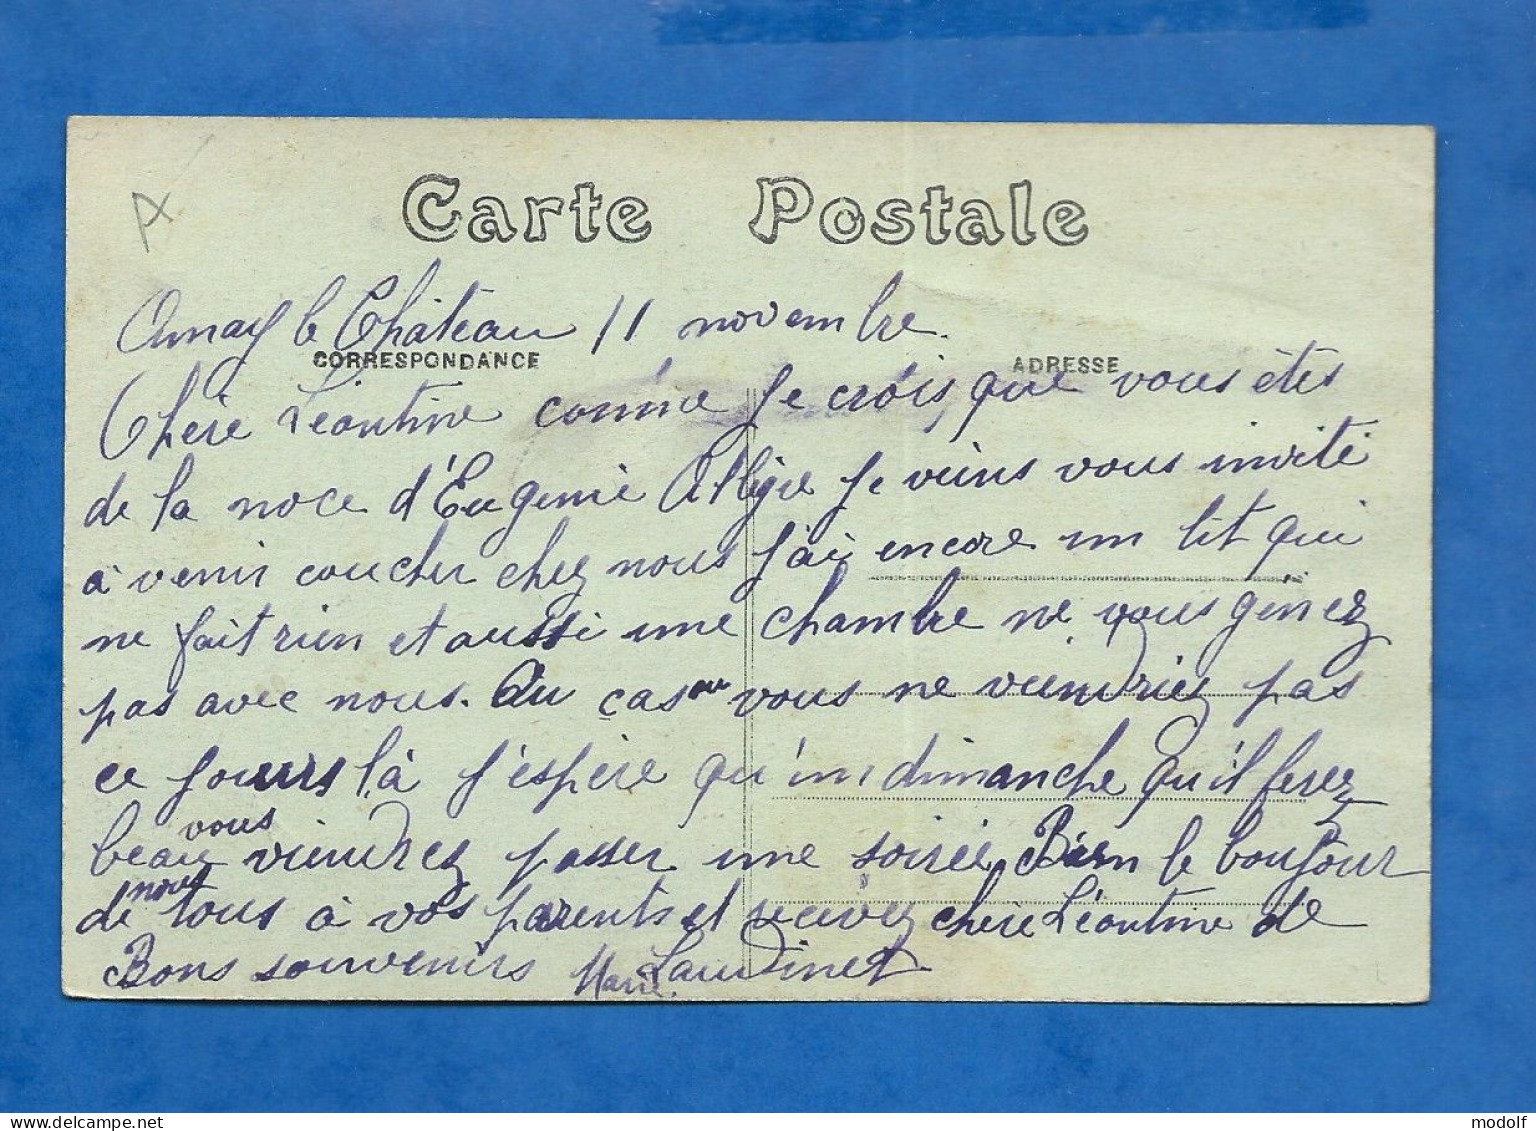 Carte Postale
Ainay le Château 11 novembre.
CORRESPONDANCE
ADRESSE
Chère Léontine comme je crois que vous êtes
de la noce d'Eugenie je viens vous invité
à venir coucher chez nous j'ai encore un lit qui
ne fait rien et aussi une chambre ne vous génez
pas avec nous. Au cas ou vous ne viendriez pas
ce jours là j'espère qu'un dimanche qu'il ferez
beau vous viendrez passer une soirée. Bien le bonjour
de nous tous à vos parents et recevez chère Léontine de
Bons souvenirs Marie Laudinet
modolf